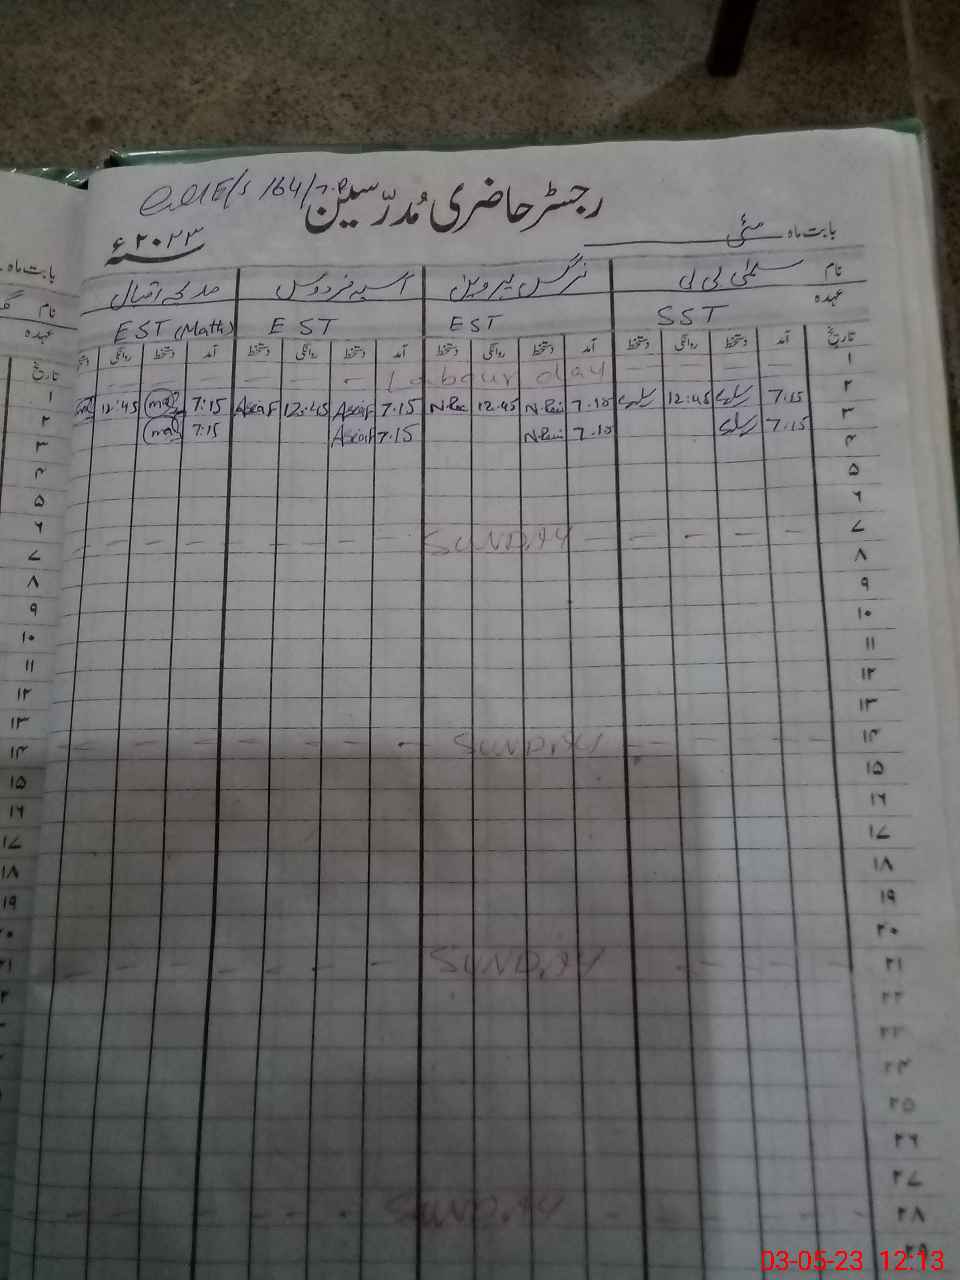 رجسٹر حاضری مُدرّسین
E/S 164/
بابت ماہ مئی
۲۰۲۳ء
بابت ماہ
نام سلمیٰ بی بی نرگس پروین آسیہ فردوس مدیحہ اقبال
نام
عہدہ SST EST EST EST (Maths)
عہدہ
تاریخ آمد دستخط روانگی دستخط آمد دستخط روانگی دستخط آمد دستخط روانگی دستخط آمد دستخط روانگی دستخط
تاریخ
۱ Labour day ۱
۲ 7:15 12:45 7.15 N.Pai 12.45 7.15 12:45 7:15 12:45 ۲
۳ 7:15 7.15 N.Pai 7.15 7:15 ۳
۴ ۴
۵ ۵
۶ ۶
۷ SUNDAY ۷
۸ ۸
۹ ۹
۱۰ ۱۰
۱۱ ۱۱
۱۲ ۱۲
۱۳ ۱۳
۱۴ SUNDAY ۱۴
۱۵ ۱۵
۱۶ ۱۶
۱۷ ۱۷
۱۸ ۱۸
۱۹ ۱۹
۲۰
۲۱ SUNDAY
۲۲
۲۳
۲۴
۲۵
۲۶
۲۷
۲۸ SUNDAY
۲۹
03-05-23 12:13